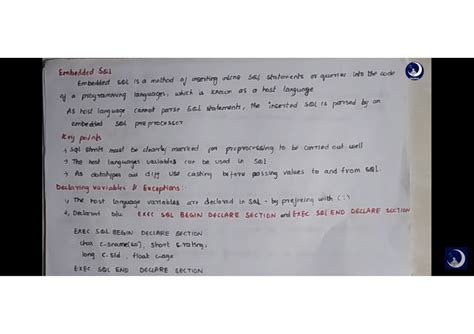 Embedded SQL
Embedded SQL is a method of inserting inline SQL statements or queries into the code
of a programming languages, which is known as a host language
As host language cannot parse SQL statements, the inserted SQL is parsed by an
embedded SQL preprocessor
Key points
→ SQL must be clearly marked for preprocessing to be carried out well
→ The host languages variables can be used in SQL
→ As datatypes are diff use casting before passing values to and from SQL.
Declaring variables & Exceptions:-
→ The host language variables are declared in SQL - by prefixing with (:)
Declared EXEC SQL BEGIN DECLARE SECTION and EXEC SQL END DECLARE SECTION
EXEC SQL BEGIN DECLARE SECTION
char short
long float
EXEC SQL END DECLARE SECTION